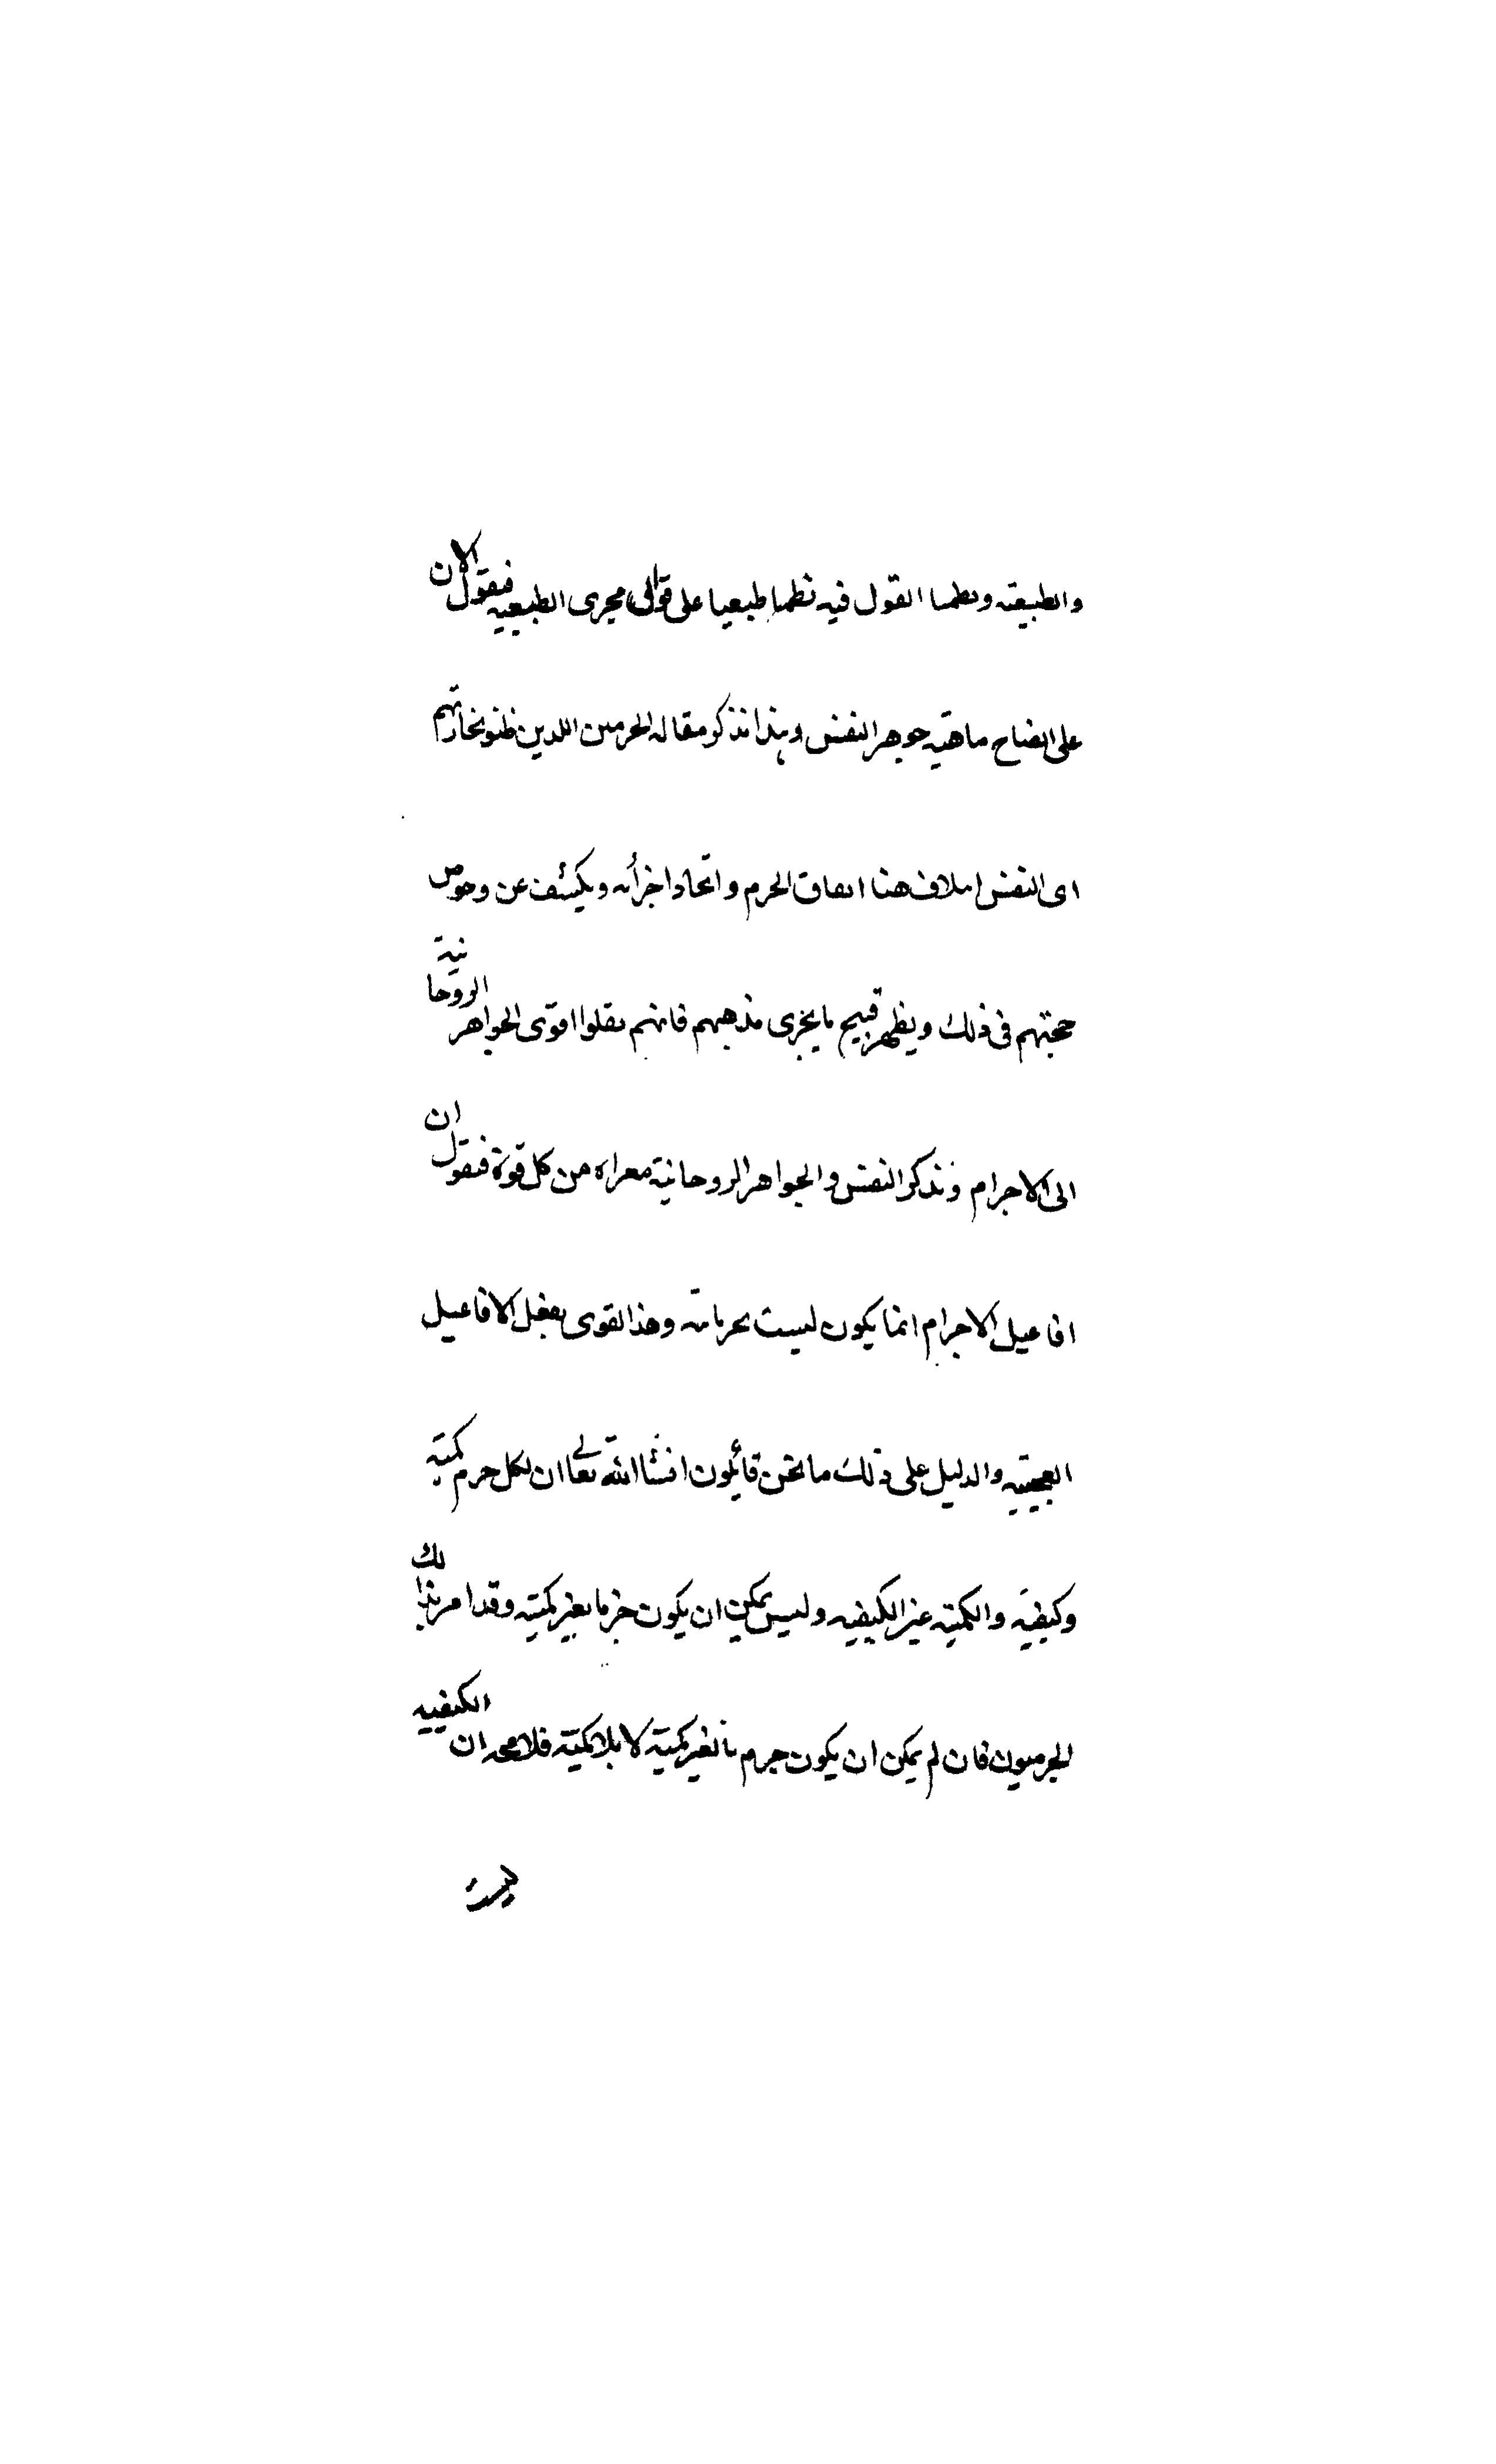 والطبيعة ونظمنا القول فيه نظما طبيعيا على توالى مجرى الطبيعيه فنقول الان
على ايضاح ماهية جوهر النفس وبهذا نذكر مقاله الجرمين اللدين ظنو بخارتهم
اى النفس ايتلاف هنا اتفاق الجرم واتحاد اجزأئه ويكشف عن وحوص
حجتهم فى ذلك ويظهر قبيح مايجرى مذهبهم فانهم نقلوا اقوى الجواهر الروحانية
الى الاجرام ونذكر النفس والجواهر الروحانية معراه من كل قوة فنقول ان
افاعيل الاجرام انما يكون ليست بجرمانية وهذا القوى يفعل الافاعيل
العجيبة والدليل على ذلك مانحن قائلون انشاالله تعالى ان لكل جرم كمية
وكيفية والكمية غير الكيفيه وليس يمكن ان يكون جرما بغير كمية وقد اقر بذالك
الجرميون فان لم يمكن ان يكون جرم ما بغير كمية لا بلاكمية فلامحه ان الكيفييه
ليست